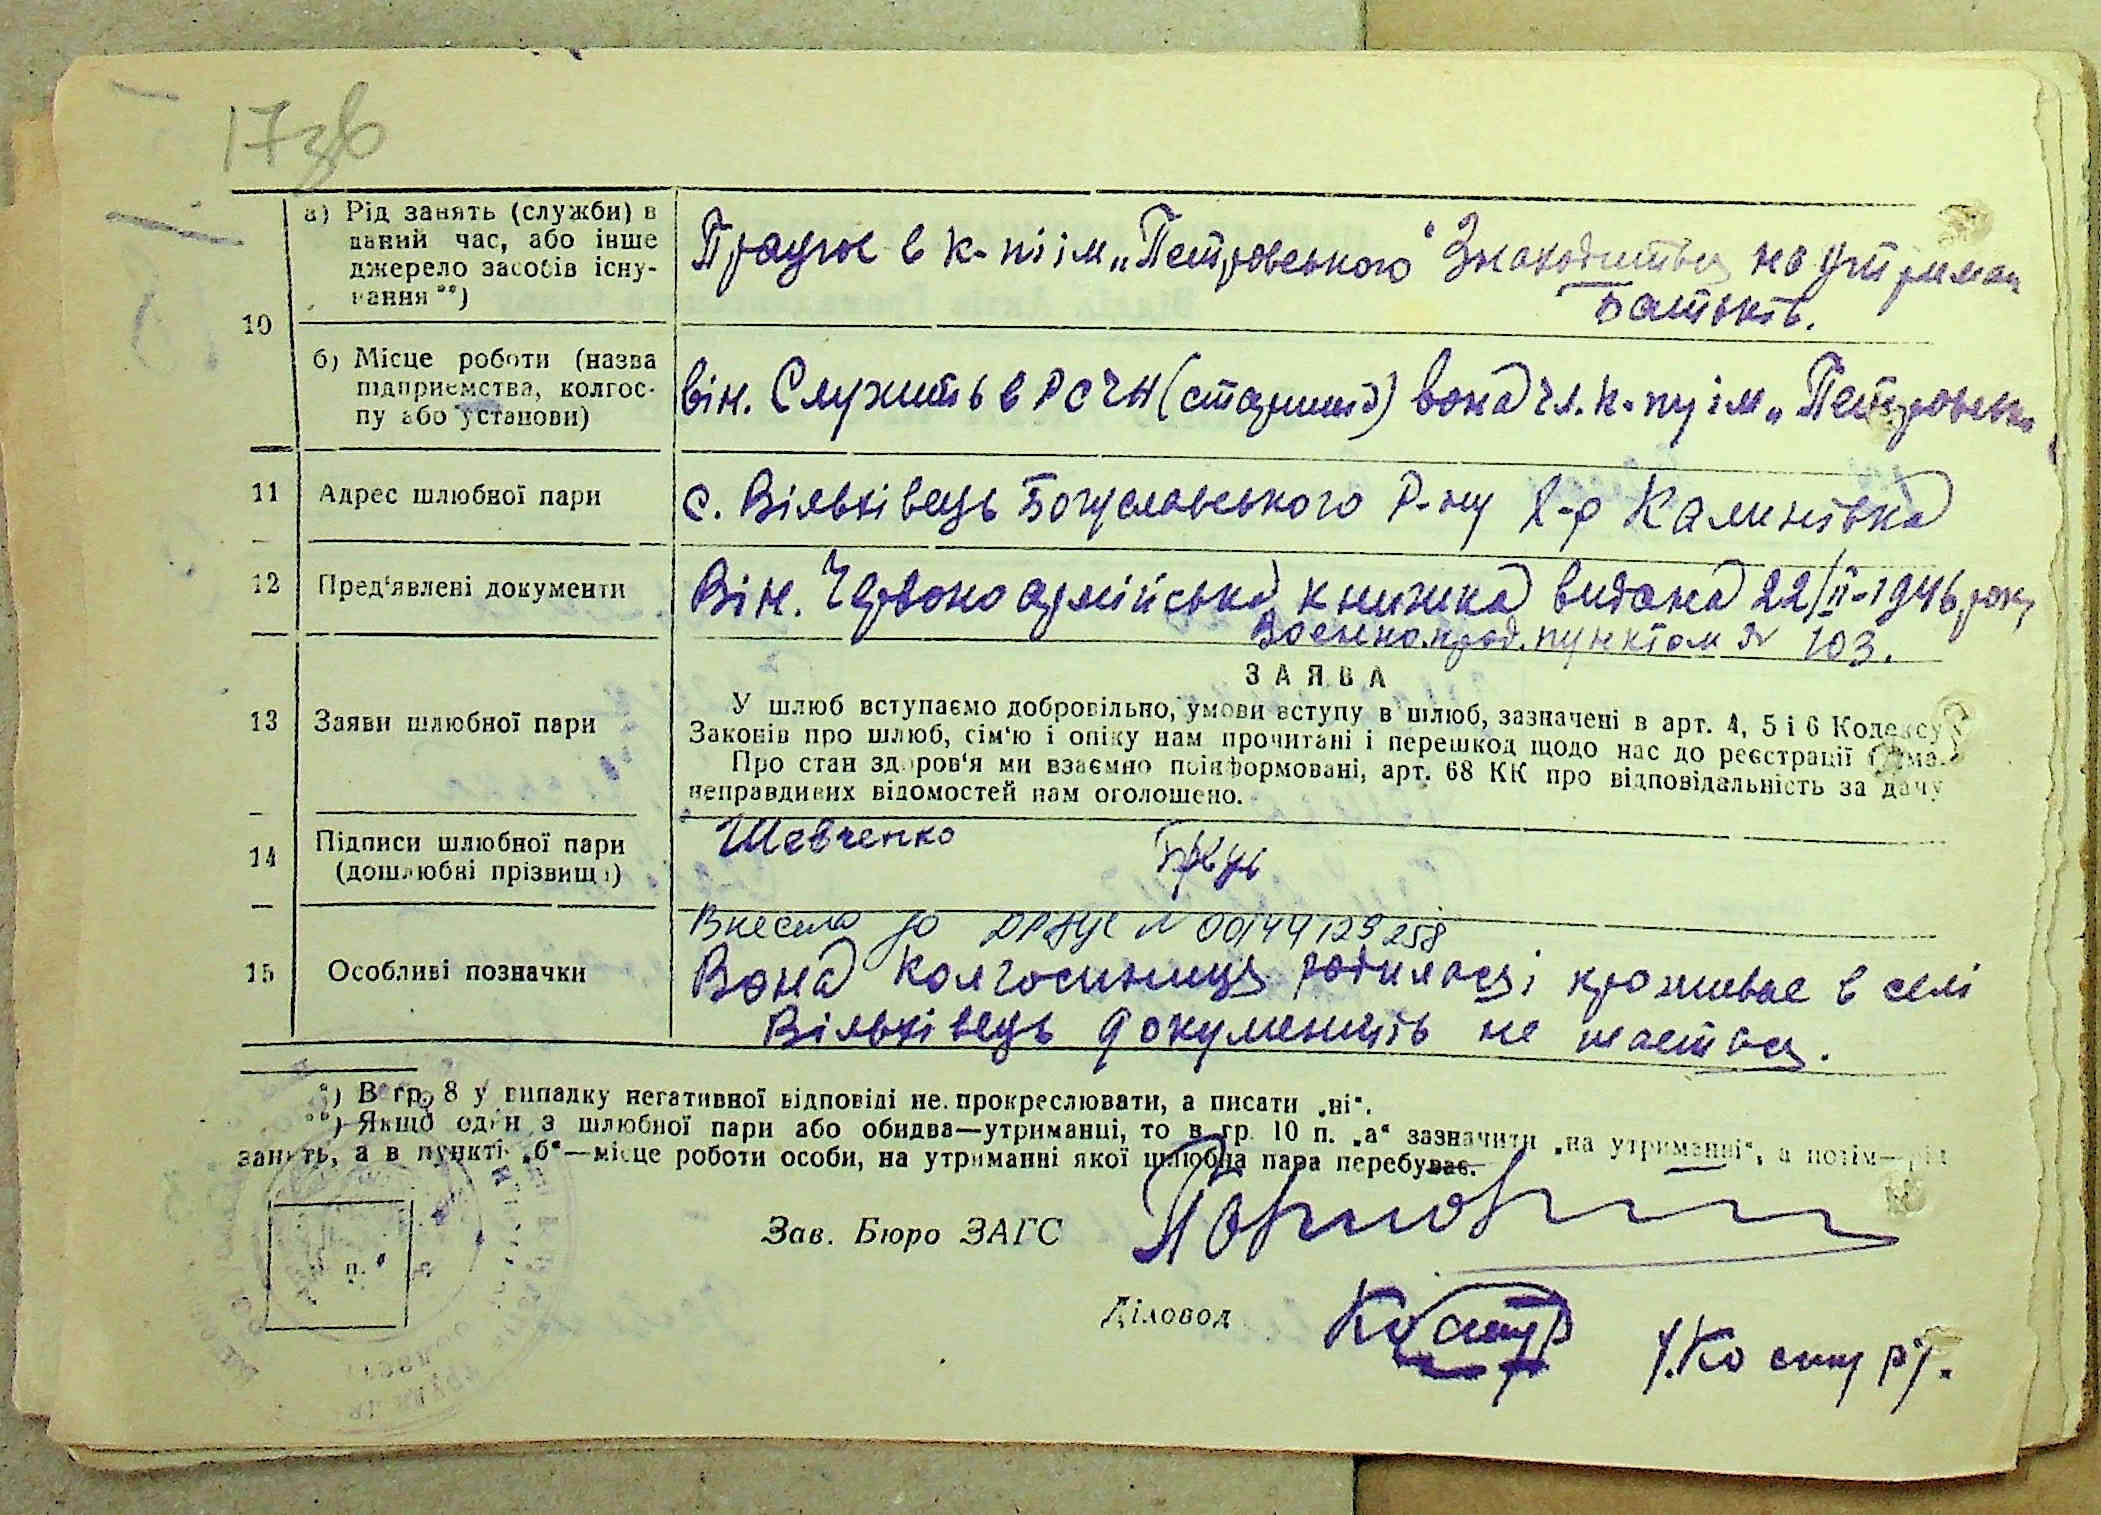 17зв
а) Рід занять (служби) в
даний час, або інше
джерело засобів існу-
вання **)
Працює в к-пі ім „Петровського“ Знаходиться на утриман
батьків.
10
б) Місце роботи (назва
підприємства, колгос-
пу або установи)
він. Служить в РСЧН (старший) вона чл. к-пу ім „Петровськ
11
Адрес шлюбної пари
с. Вільхівець Богуславського р-ну х-р Калинівка
12
Пред'явлені документи
Він. Червоноармійська книжка видана 22/ІІ-1946 року
Воєнно.прод.пунктом № 103.
ЗАЯВА
13
Заяви шлюбної пари
У шлюб вступаємо добровільно, умови вступу в шлюб, зазначені в арт. 4, 5 і 6 Кодексу
Законів про шлюб, сім'ю і опіку нам прочитані і перешкод щодо нас до реєстрації нема.
Про стан здоров'я ми взаємно поінформовані, арт. 68 КК про відповідальність за дачу
неправдивих відомостей нам оголошено.
14
Підписи шлюбної пари
(дошлюбні прізвища)
Шевченко
15
Особливі позначки
Внесено до ДРАЦС № 00144129258
Вона колгоспниця родилась і проживає в селі
Вільхівець документів не мається.
*) В гр. 8 у випадку негативної відповіді не прокреслювати, а писати „ні“.
**) Якщо один з шлюбної пари або обидва—утриманці, то в гр. 10 п. „а“ зазначити „на утриманні“, а потім—рід
занять, а в пункті „б“—місце роботи особи, на утриманні якої шлюбна пара перебуває.
п.
Зав. Бюро ЗАГС
Діловод